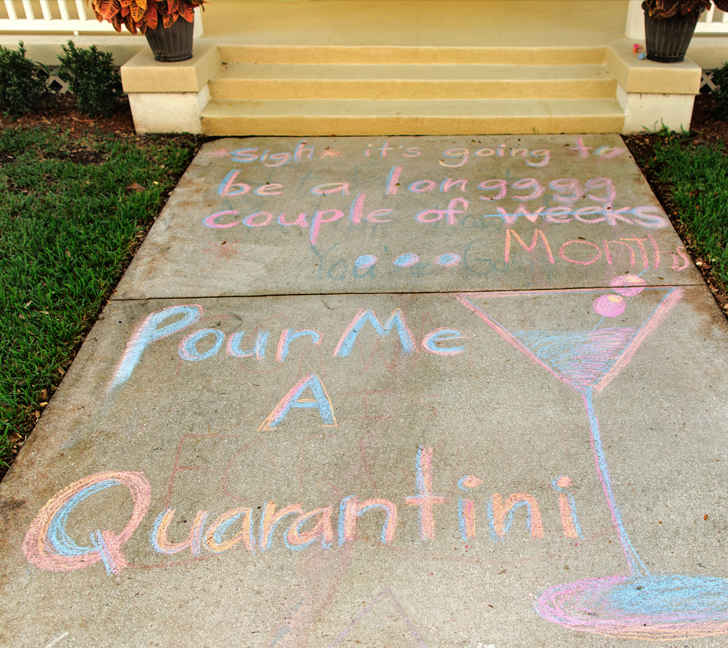 *sigh* it's going to
be a longgggg
couple of weeks
Months
...
Pour Me
A
Quarantini